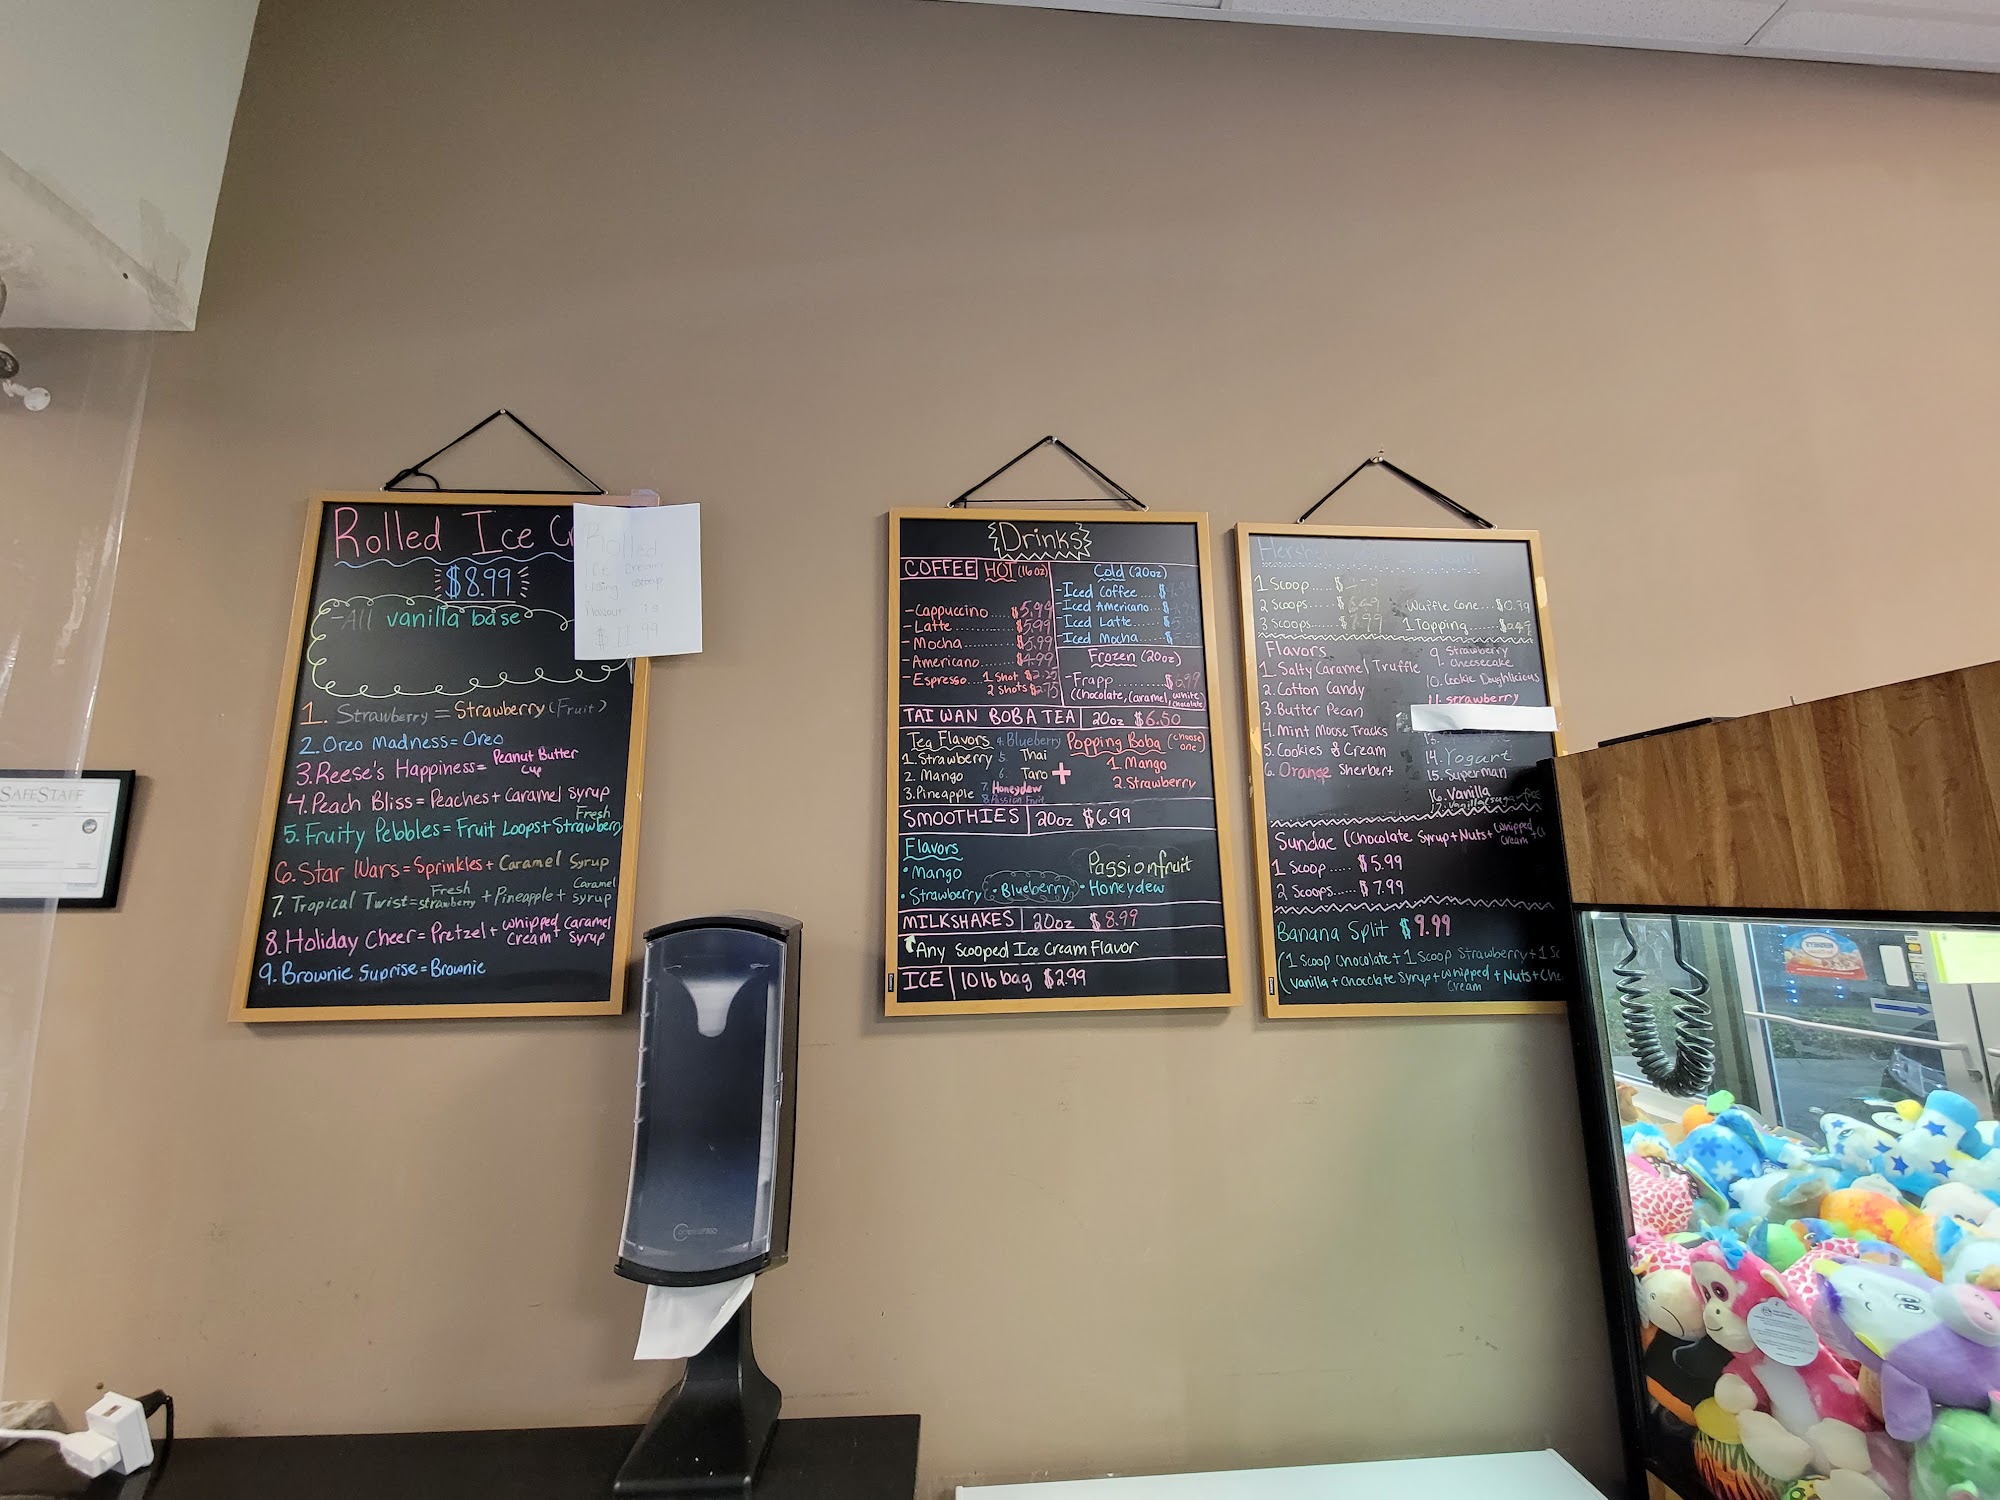 SAFESTAFF
Rolled Ice
$8.99
-All vanilla base
1. Strawberry = Strawberry (Fruit)
2. Oreo Madness = Oreo
3. Reese's Happiness = Peanut Butter Cup
4. Peach Bliss = Peaches + Caramel Syrup
5. Fruity Pebbles = Fruit Loops + Fresh Strawberry
6. Star Wars = Sprinkles + Caramel Syrup
7. Tropical Twist = Fresh strawberry + Pineapple + Caramel syrup
8. Holiday Cheer = Pretzel + whipped Cream + Caramel Syrup
9. Brownie Suprise = Brownie
Rolled
Ice Cream
using scoop
flavour is
$11.99
Drinks
COFFEE HOT (16oz)
- Cappuccino... $5.99
- Latte.......... $5.99
- Mocha......... $5.99
- Americano..... $4.99
- Espresso.... 1 Shot $2.25
2 Shots $2.75
Cold (20oz)
- Iced Coffee.....$
- Iced Americano...$
- Iced Latte.....$
- Iced Mocha.....$
Frozen (20oz)
- Frapp......... $6.99
(Chocolate, Caramel, White Chocolate)
TAIWAN BOBA TEA | 20oz $6.50
Tea Flavors
1. Strawberry
2. Mango
3. Pineapple
4. Blueberry
5. Thai
6. Taro
7. Honeydew
8. Passion Fruit
+
Popping Boba (choose one)
1. Mango
2. Strawberry
SMOOTHIES | 20oz $6.99
Flavors
• Mango
• Strawberry • Blueberry • Honeydew
Passionfruit
MILKSHAKES | 20oz $8.99
Any Scooped Ice Cream Flavor
ICE | 10lb bag $2.99
1 Scoop.....$
2 Scoops.....$
3 Scoops.....$
Waffle Cone...$0.79
1 Topping.....$0.49
Flavors
1. Salty Caramel Truffle
2. Cotton Candy
3. Butter Pecan
4. Mint Moose Tracks
5. Cookies & Cream
6. Orange Sherbert
9. Strawberry Cheesecake
10. Cookie Doughlicious
11. Strawberry
14. Yogart
15. Superman
16. Vanilla
17. Vanilla (sugar free
Sundae (Chocolate Syrup + Nuts + Whipped Cream +
1 Scoop.... $5.99
2 Scoops..... $7.99
Banana Split $9.99
(1 Scoop Chocolate + 1 Scoop Strawberry + 1 Sc
Vanilla + Chocolate Syrup + Whipped Cream + Nuts + Che